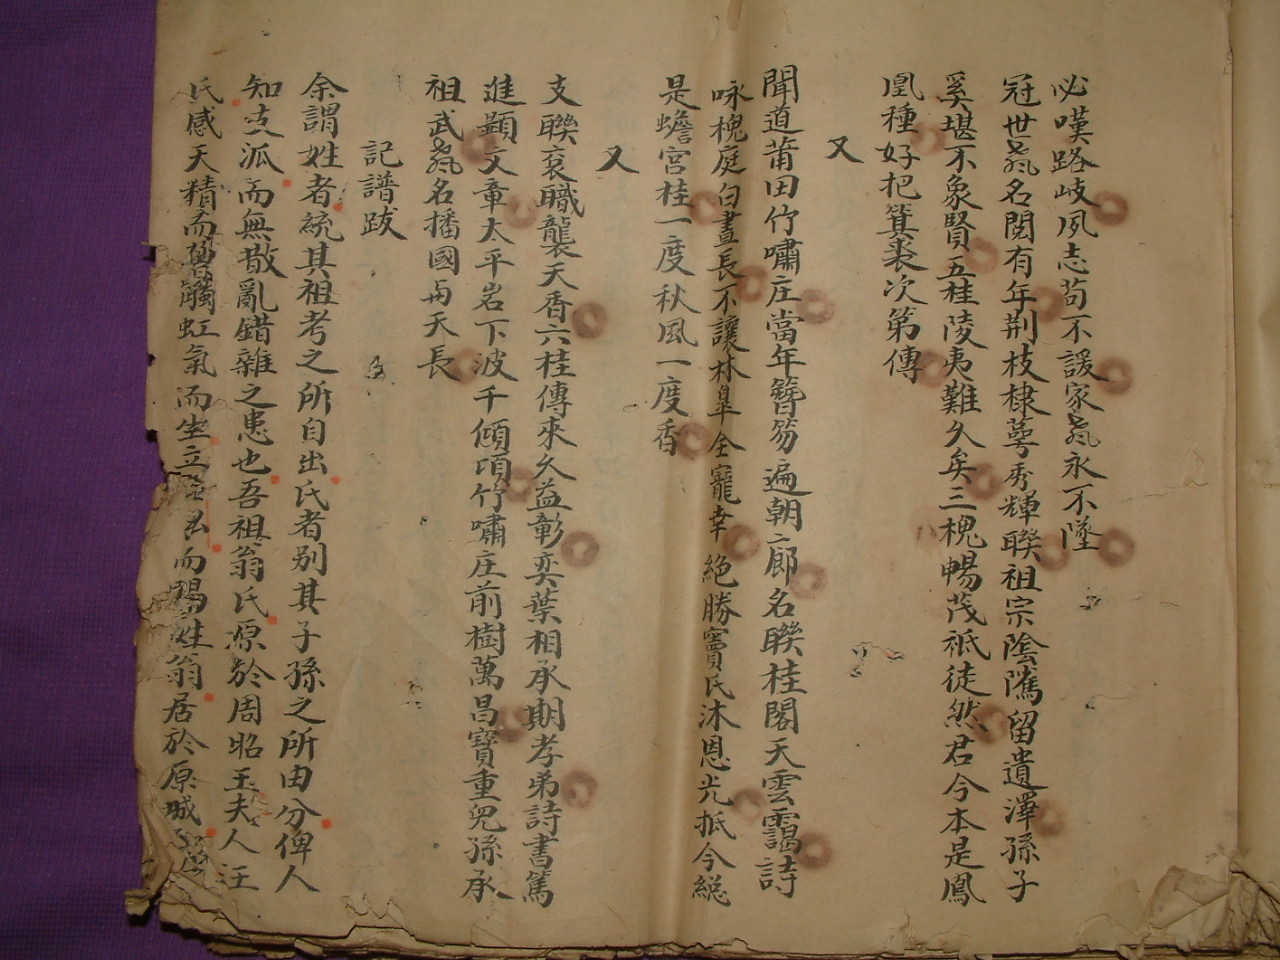 必嘆路岐夙志苟不諼家聲永不墜
冠世聲名閥有年荆枝棣萼秀輝聯祖宗隂隲留遺澤孫子
奚堪不象賢五桂陵夷難久矣三槐暢茂祗徒然君今本是鳳
凰種好把箕裘次第傳
又
聞道莆田竹嘯庄當年簪笏遍朝廊名聯桂閣天雲靄詩
咏槐庭白晝長不讓林臯全寵幸絶勝竇氏沐恩光抵今総
是蟾宫桂一度秋風一度香
又
支聯衮職襲天香六桂傳來久益彰奕葉相承期孝弟詩書篤
進顯文章太平岩下波千傾竹嘯庄前樹萬昌寶重兒孫承
祖武聲名播國与天長
記譜跋
余謂姓者統其祖考之所自出氏者别其子孫之所由分俾人
知支泒而無散亂錯雜之患也吾祖翁氏源於周昭王夫人汪
氏感天精而孕觸虹氣而生立而賜姓翁居於原城